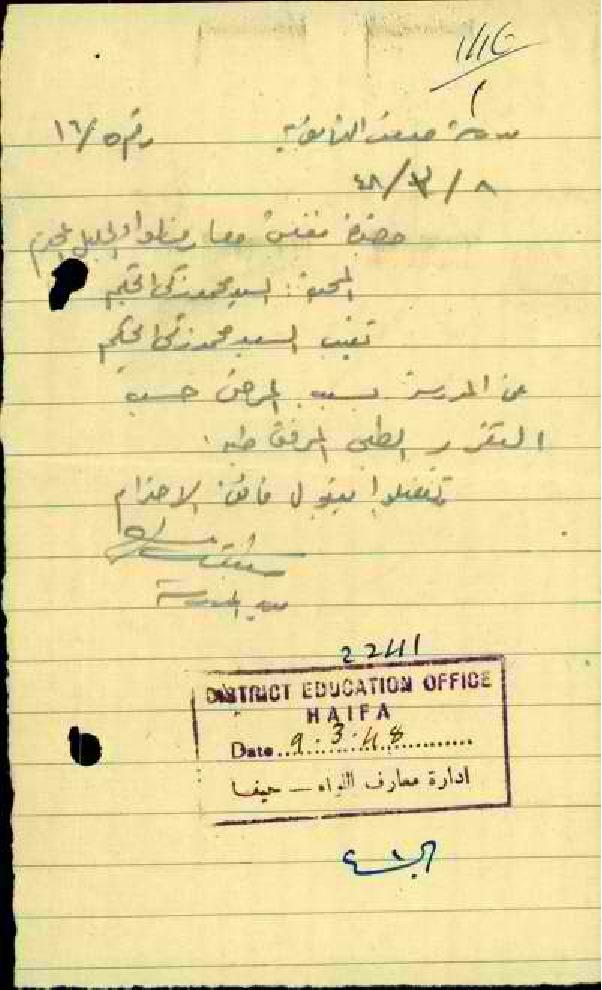 1/16
مدرسة الثانوية رقم ١٦/٥
٤٨/٣/٨
حضرة مفتش معارف لواء الجليل المحترم
السيد محمد زكي الحكيم
تغيب السيد محمد زكي الحكيم
عن المدرسة بسبب المرض حسب
التقرير الطبي المرفق طيه .
تفضلوا بقبول فائق الاحترام
مدير المدرسة
2241
DISTRICT EDUCATION OFFICE
HAIFA
Date 9.3.48
ادارة معارف اللواء — حيفا